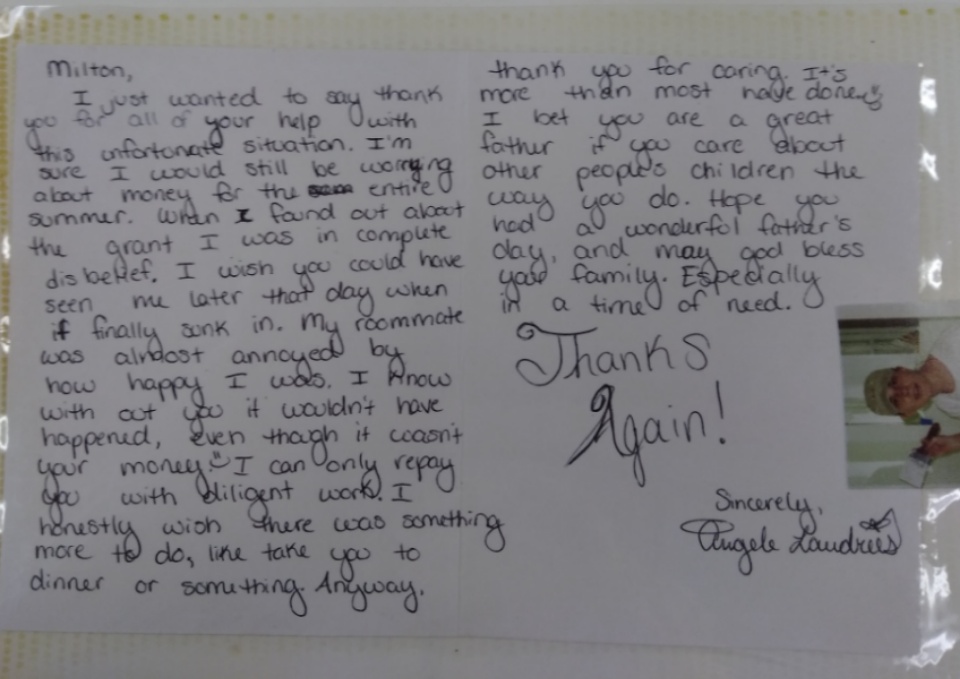 Milton,
I just wanted to say thank
you for all of your help with
this unfortunate situation. I'm
sure I would still be worrying
about money for the entire
summer. When I found out about
the grant I was in complete
disbelief. I wish you could have
seen me later that day when
it finally sunk in. My roommate
was almost annoyed by
how happy I was. I know
with out you it wouldn't have
happened, even though it wasn't
your money. I can only repay
you with diligent work. I
honestly wish there was something
more to do, like take you to
dinner or something. Anyway,
thank you for caring. It's
more than most have done.
I bet you are a great
father if you care about
other people's children the
way you do. Hope you
had a wonderful father's
day, and may god bless
your family. Especially
in a time of need.
Thanks
Again!
Sincerely,
Angele